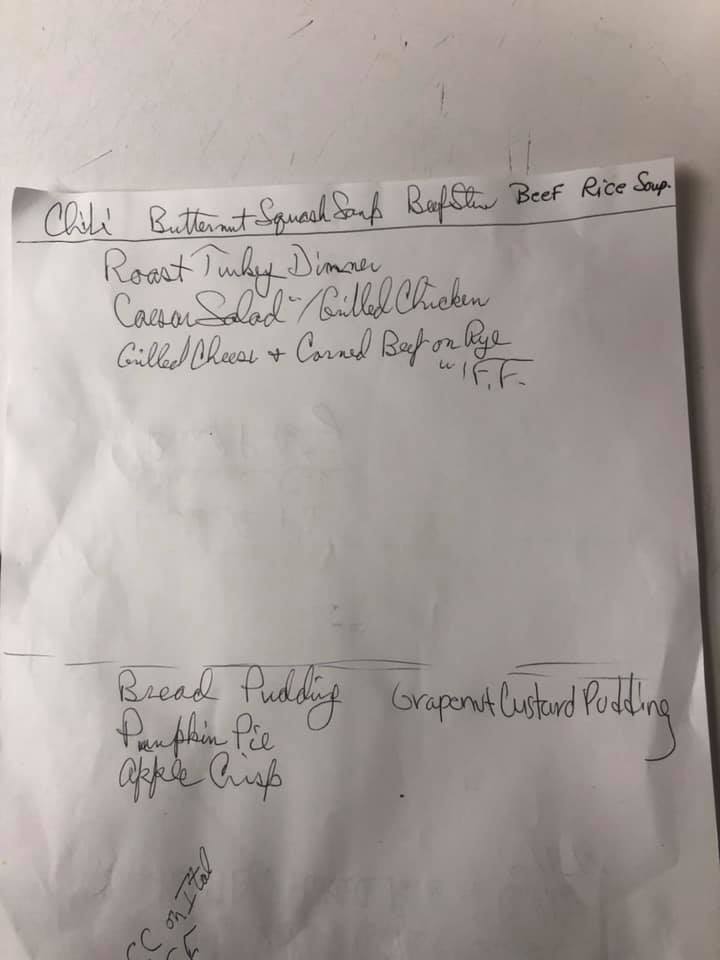 Chili Butternut Squash Soup Beef Stew Beef Rice Soup.
Roast Turkey Dinner
Caesar Salad w/Grilled Chicken
Grilled Cheese + Corned Beef on Rye
w/ F.F.
Bread Pudding Grapenut Custard Pudding
Pumpkin Pie
Apple Crisp
CC on Ital